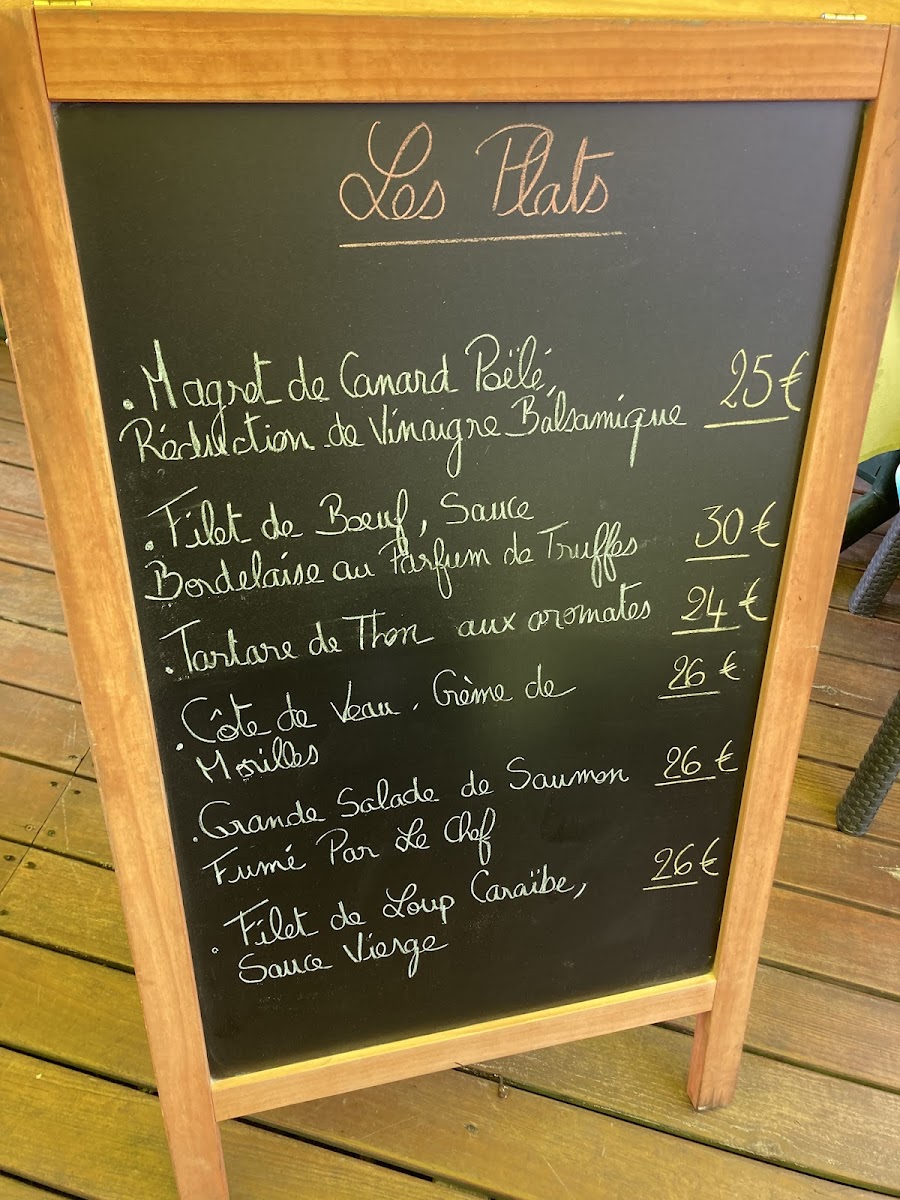 Les Plats
. Magret de Canard Poêlé, 25€
Réduction de Vinaigre Balsamique
. Filet de Boeuf, Sauce 30€
Bordelaise au Parfum de Truffes
. Tartare de Thon aux aromates 24€
. Côte de Veau, Crème de 26€
Morilles
. Grande Salade de Saumon 26€
Fumé Par Le Chef
. Filet de Loup Caraïbe, 26€
Sauce Vierge